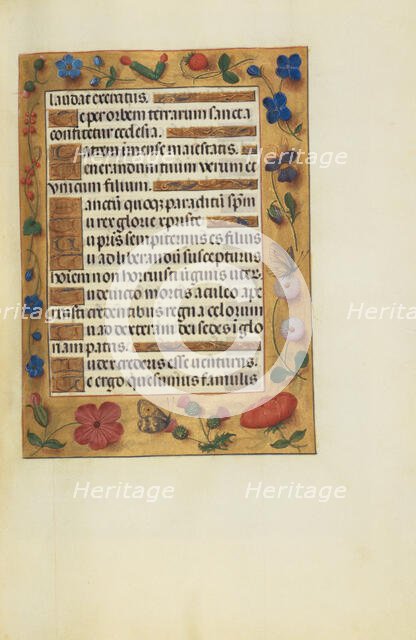 laudat exercitus.
Te per orbem terrarum sancta
confitetur ecclesia.
Patrem inmense maiestatis.
Venerandum tuum verum et
vnicum filium.
Sanctu quoq; paraclitu spm
Tu rex glorie xpriste
Tu pris sempiternus es filius
Tu ad liberandu suscepturus
hoiem non horruisti virginis vter.
Tu devicto mortis aculeo ape
ruisti credentibus regna celorum
Tu ad dexteram dei sedes i glo
ria patris.
Iudex crederis esse venturus.
Te ergo quesumus famulis
Heritage
Heritage
Heritage
Heritage
Heritage
Heritage